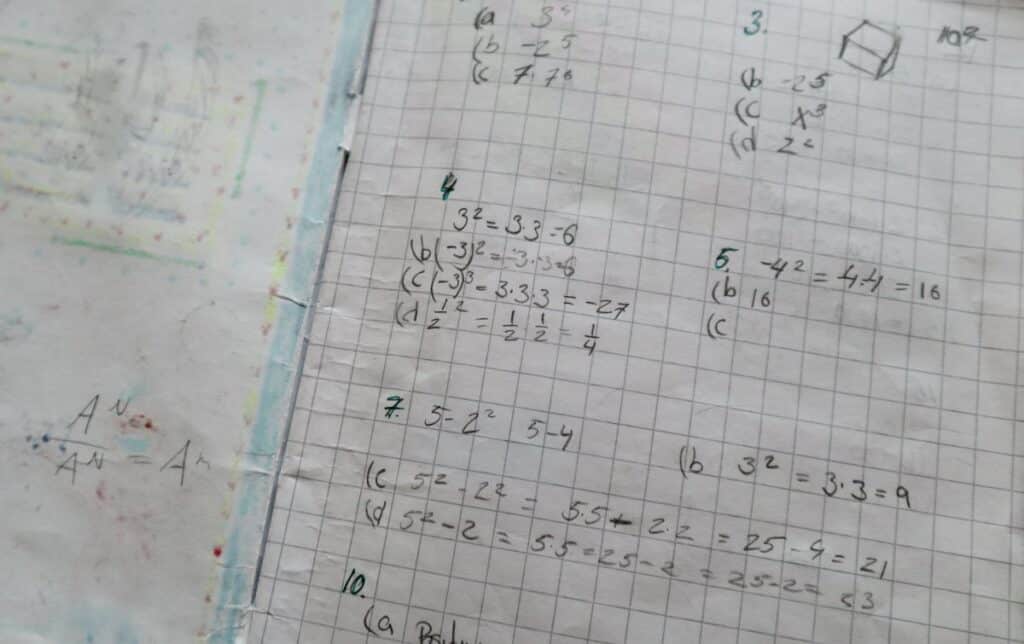 (a 3⁴
(b -2⁵
(c 7·7⁶
3.
(b -25
(c x³
(d 2⁴
4
3² = 3·3 = 6
(b (-3)² = -3·-3=6
(c (-3)³ = 3·3·3 = -27
(d ½² = ½ ½ = ¼
5. -4² = 4·4 = 16
(b 16
(c
7. 5-2² 5-4
(b 3² = 3·3 = 9
(c 5² - 2² = 5·5 - 2·2 = 25 - 4 = 21
(d 5² - 2 = 5·5 = 25 - 2 = 25-2 = 23
10.
(a
Aᴺ
Aᴺ = A